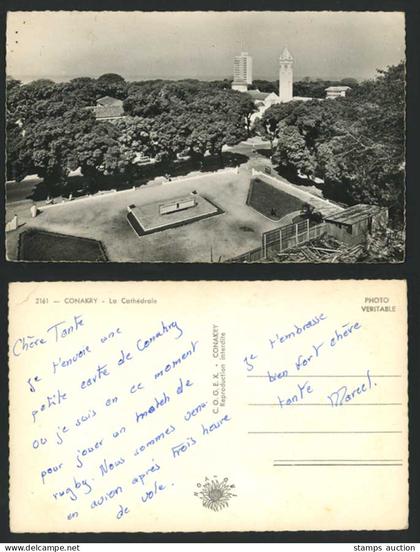 2161 — CONAKRY - La Cathédrale
PHOTO
VERITABLE
Chère Tante
Je t'envoie une
petite carte de Conakry
ou je suis en ce moment
pour jouer un match de
rugby. Nous sommes venu
en avion après trois heure
de vole.
C.O.G.E.X. - CONAKRY
Reproduction interdite
je t'embrasse
bien fort chère
tante
Marcel.
stamps auction